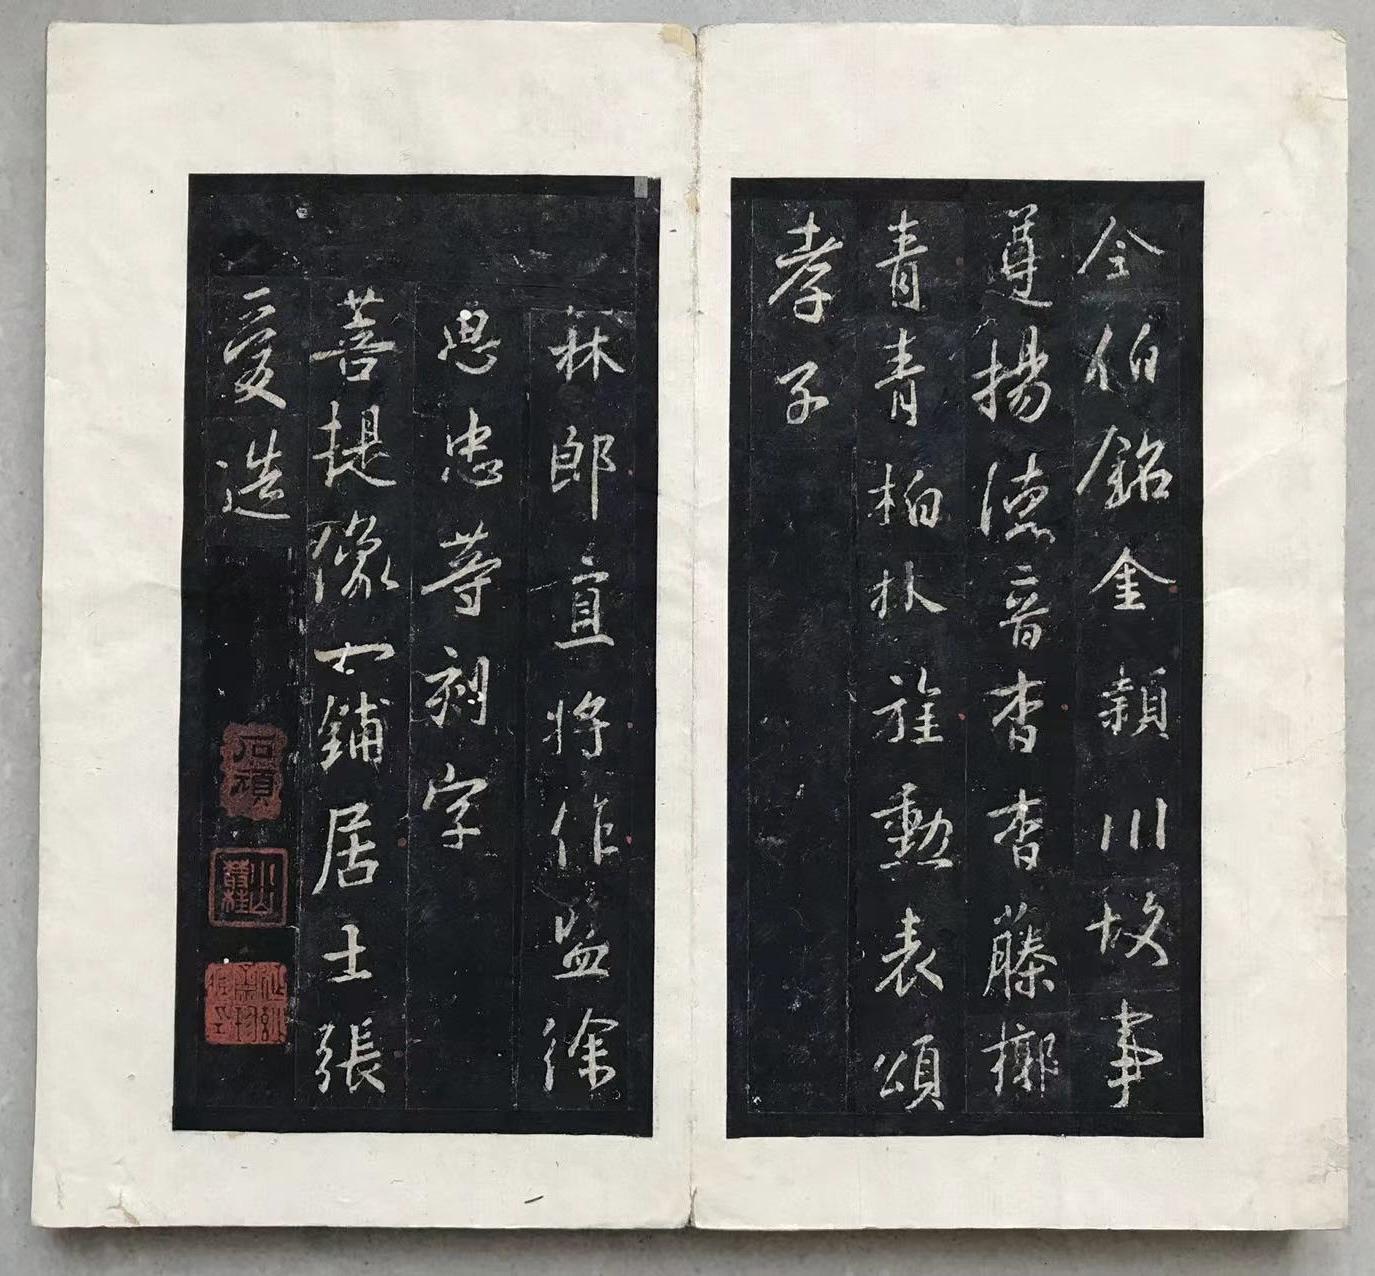 令伯銘金穎川故事
遵揚德音杳杳藤槨
青青柏林旌勳表頌
孝子
林郎直將作監徐
思忠等刻字
菩提像一鋪居士張
爰造
石頑